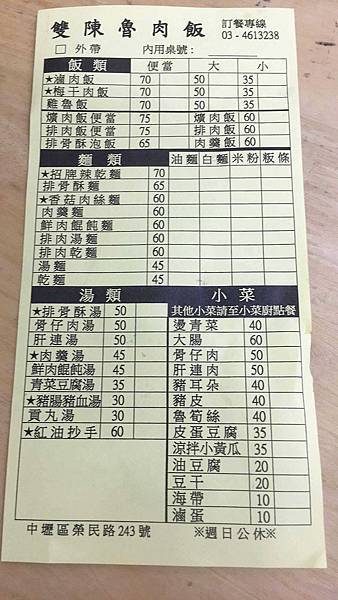 雙陳魯肉飯 訂餐專線
03-4613238
□外帶 內用桌號:
飯類 便當 大 小
★滷肉飯 70 50 35
★梅干肉飯 70 50 35
雞魯飯 70 50 35
爌肉飯便當 75 爌肉飯 60
排肉飯便當 75 排肉飯 60
排骨酥泡飯 65 肉羹飯 60
麵類 油麵 白麵 米粉 粄條
★招牌辣乾麵 70
排骨酥麵 65
★香菇肉絲麵 60
肉羹麵 60
鮮肉餛飩麵 60
排肉湯麵 60
排肉乾麵 60
湯麵 45
乾麵 45
湯類 小菜
★排骨酥湯 50 其他小菜請至小菜廚點餐
骨仔肉湯 50 燙青菜 40
肝連湯 50 大腸 60
★肉羹湯 45 骨仔肉 50
鮮肉餛飩湯 45 肝連肉 50
青菜豆腐湯 35 豬耳朵 40
★豬腸豬血湯 30 豬皮 40
貢丸湯 30 魯筍絲 40
★紅油抄手 60 皮蛋豆腐 35
涼拌小黃瓜 35
油豆腐 20
豆干 20
海帶 10
滷蛋 10
中壢區榮民路243號 ※週日公休※